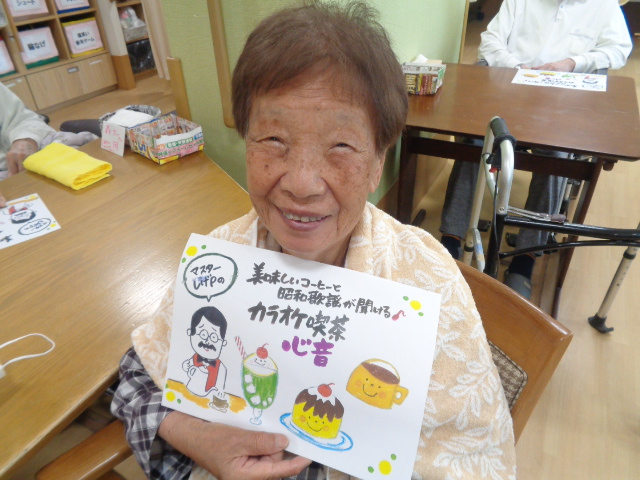 マスター
ひげPの
美味しいコーヒーと
昭和歌謡が聞ける♪
カラオケ喫茶
心音
輪なげ